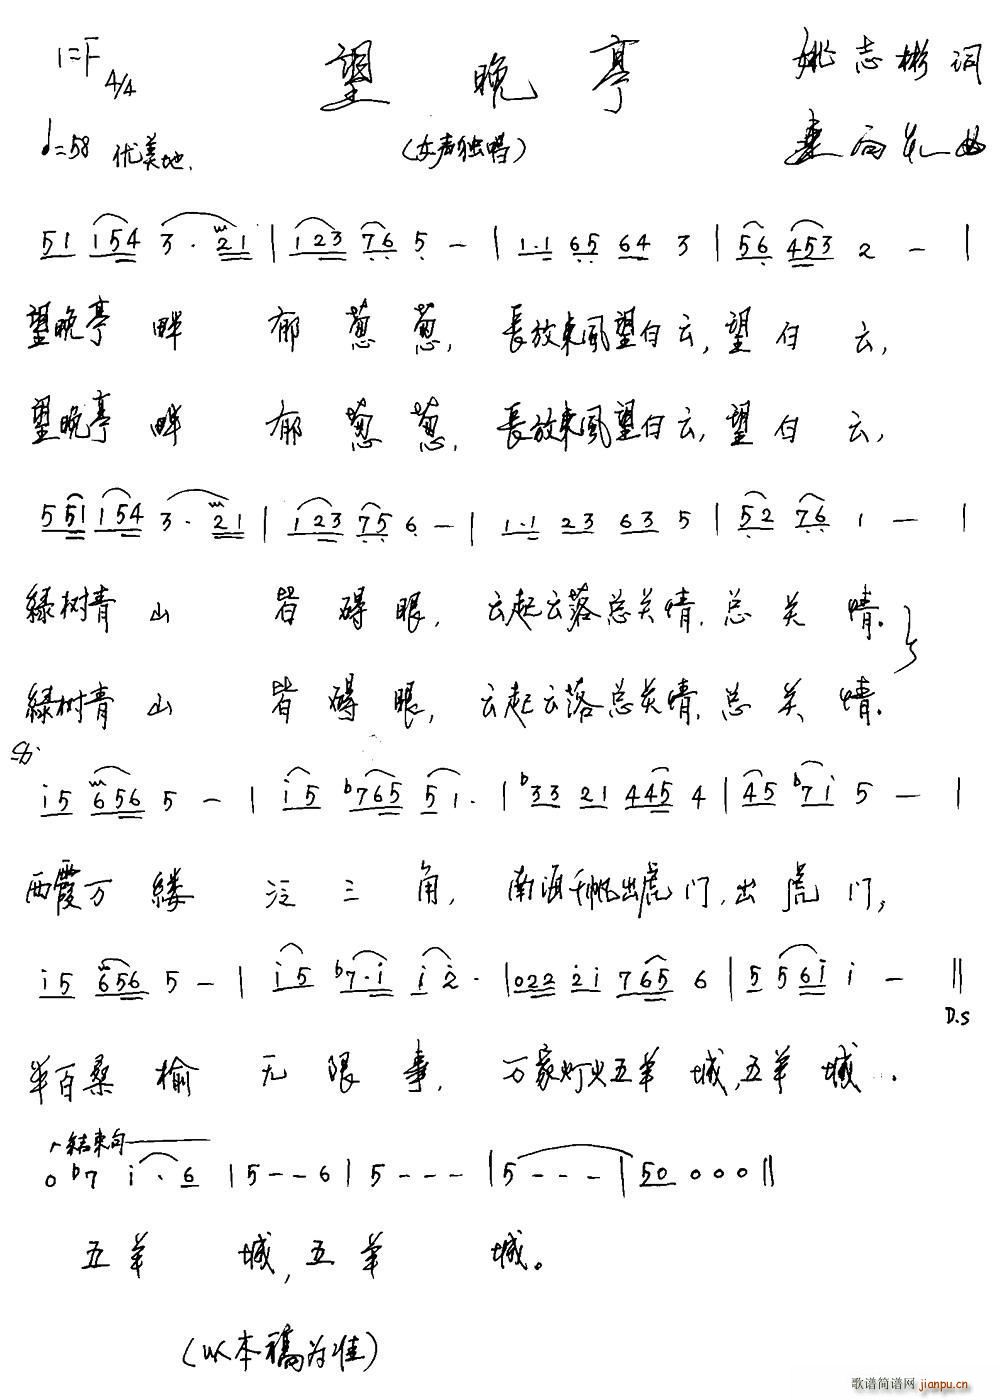 1=F 4/4
望晚亭
姚志彬词
♩=58 优美地.
(女声独唱)
曲
51 154 3·21 | 123 76 5 - | 1·1 65 64 3 | 56 453 2 - |
望晚亭畔 郁葱葱, 長放東風望白云, 望白云,
望晚亭畔 郁葱葱, 長放東風望白云, 望白云,
551 154 3·21 | 123 75 6 - | 1·1 23 63 5 | 52 76 1 - |
緑树青山 皆碍眼, 云起云落总关情, 总关情.
緑树青山 皆碍眼, 云起云落总关情, 总关情.
i5 656 5 - | i5 b765 51· | b33 21 445 4 | 45 b7i 5 - |
西霞万缕 泛三角, 南海千帆出虎门, 出虎门,
i5 656 5 - | i5 b7·i i2· | 022 2i 765 6 | 5 56i i - ||
D.S
半百桑榆 无限事, 万家灯火五羊城, 五羊城.
结束句
0 b7 i·6 | 5 - - 6 | 5 - - - | 5 - - - | 50 0 0 0 ||
五羊城, 五羊城。
(以本稿为准)
歌谱简谱网
jianpu.cn